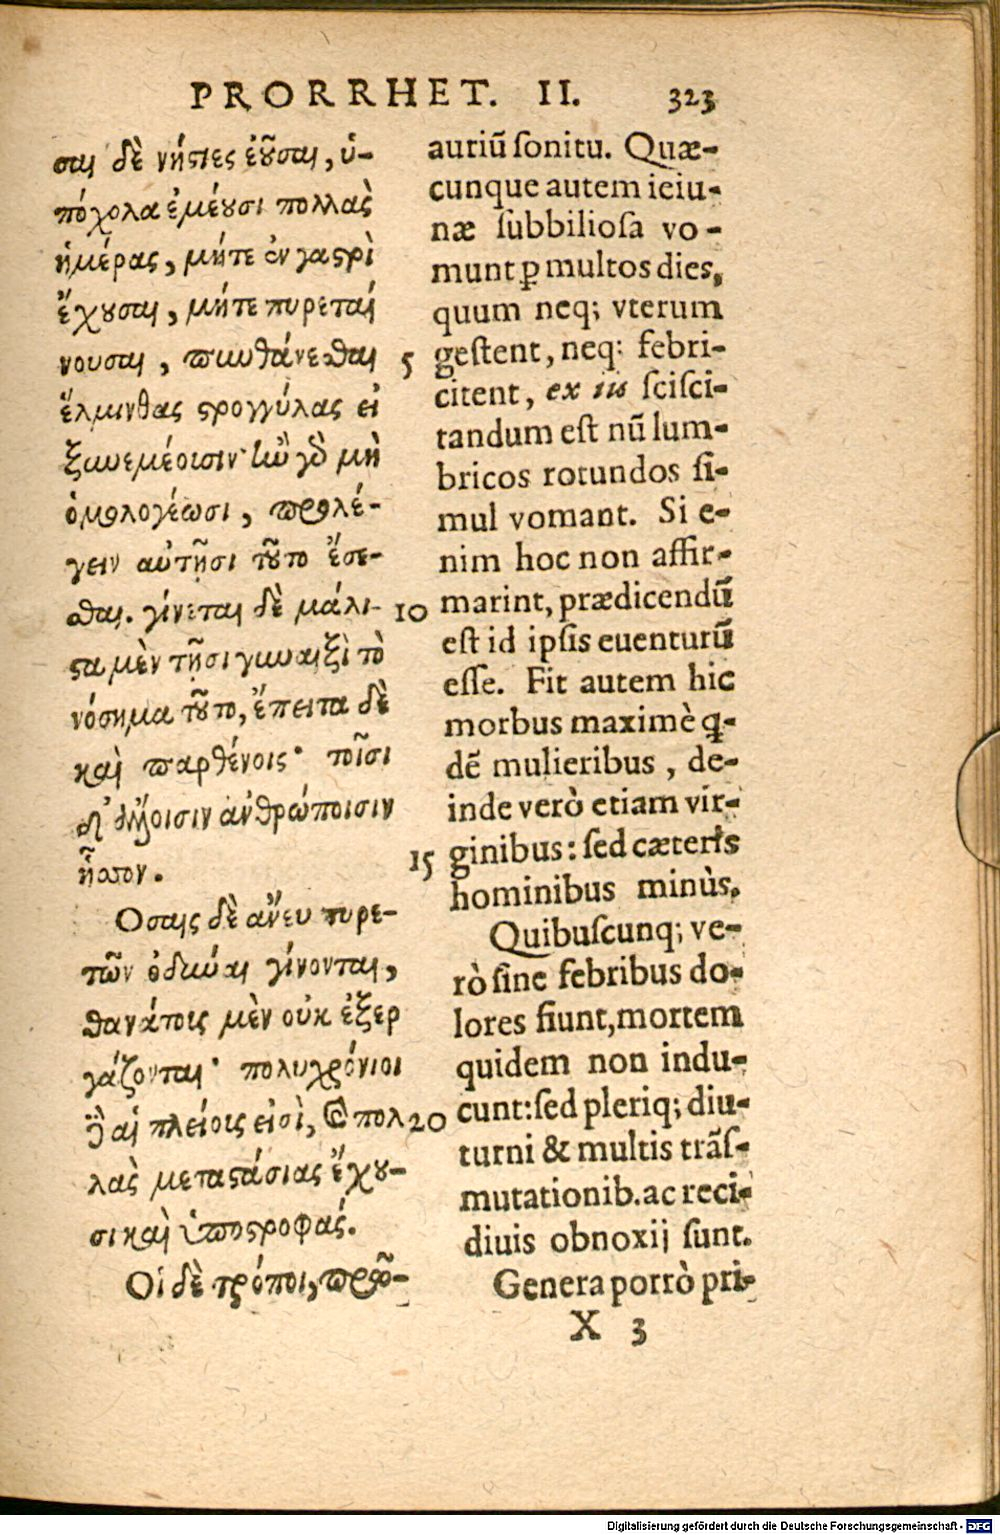 PRORRHET. II. 323
σαι δὲ νήστιες ἐοῦσαι, ὑ-
πόχολα ἐμέουσι πολλὰς
ἡμέρας, μήτε ἐν γαστρὶ
ἔχουσαι, μήτε πυρεταί
νουσαι, πυνθάνεσθαι
ἕλμινθας στρογγύλας εἰ
ξυνεμέοισιν· ἢν γὸ μὴ
ὁμολογέωσι, προλέ-
γειν αὐτῇσι τοῦτο ἔσε-
σθαι. γίνεται δὲ μάλι-
στα μὲν τῇσι γυναιξὶ τὸ
νόσημα τοῦτο, ἔπειτα δὲ
καὶ παρθένοις· τοῖσι
δ' ἄλλοισιν ἀνθρώποισιν
ἧσσον.
Οσαις δὲ ἄνευ πυρε-
τῶν ὀδύναι γίνονται,
θανάτοις μὲν οὐκ ἐξερ
γάζονται· πολυχρόνιοι
δὲ αἱ πλείοις εἰσὶ, καὶ πολ
λὰς μεταστάσιας ἔχου-
σι καὶ ὑποστροφάς.
Οἱ δὲ τρόποι, πρῶ-
5
10
15
20
autiū ſonitu. Quæ-
cunque autem ieiu-
næ ſubbilioſa vo-
munt ꝑ multos dies,
quum neq; vterum
geſtent, neq: febri-
citent, ex iis ſciſci-
tandum eſt nū lum-
bricos rotundos ſi-
mul vomant. Si e-
nim hoc non affir-
marint, prædicendū
eſt id ipſis euenturū
eſſe. Fit autem hic
morbus maximè q-
dē mulieribus, de-
inde verò etiam vir-
ginibus: ſed cæteris
hominibus minùs.
Quibuſcunq; ve-
rò ſine febribus do-
lores fiunt, mortem
quidem non indu-
cunt: ſed pleriq; diu-
turni & multis trāſ-
mutationib. ac reci-
diuis obnoxij ſunt.
Genera porrò pri-
X 3
Digitalisierung gefördert durch die Deutsche Forschungsgemeinschaft - DFG